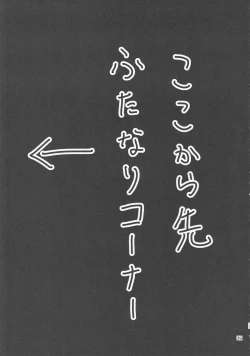 ここから先
ふたなりコーナー